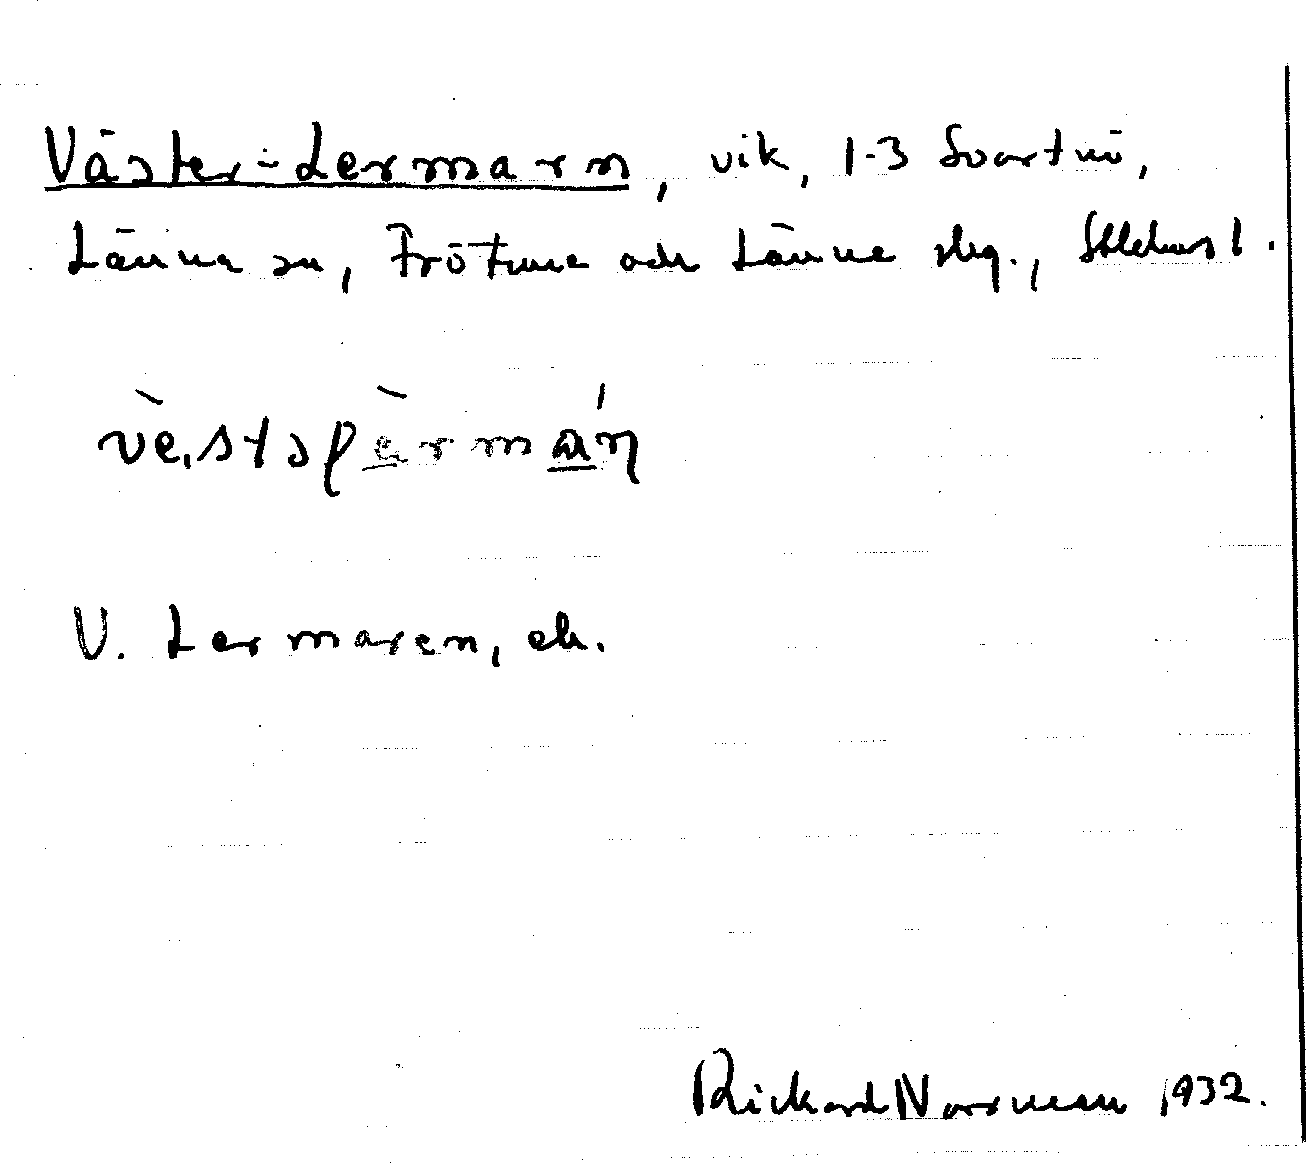 Väster-Lermarn, vik, 1-3 Svartnö,
Länna sn, Frötuna och Länna skg., Sthlms l.
V. Lermaren, ek.
Rickard Norrman 1932.